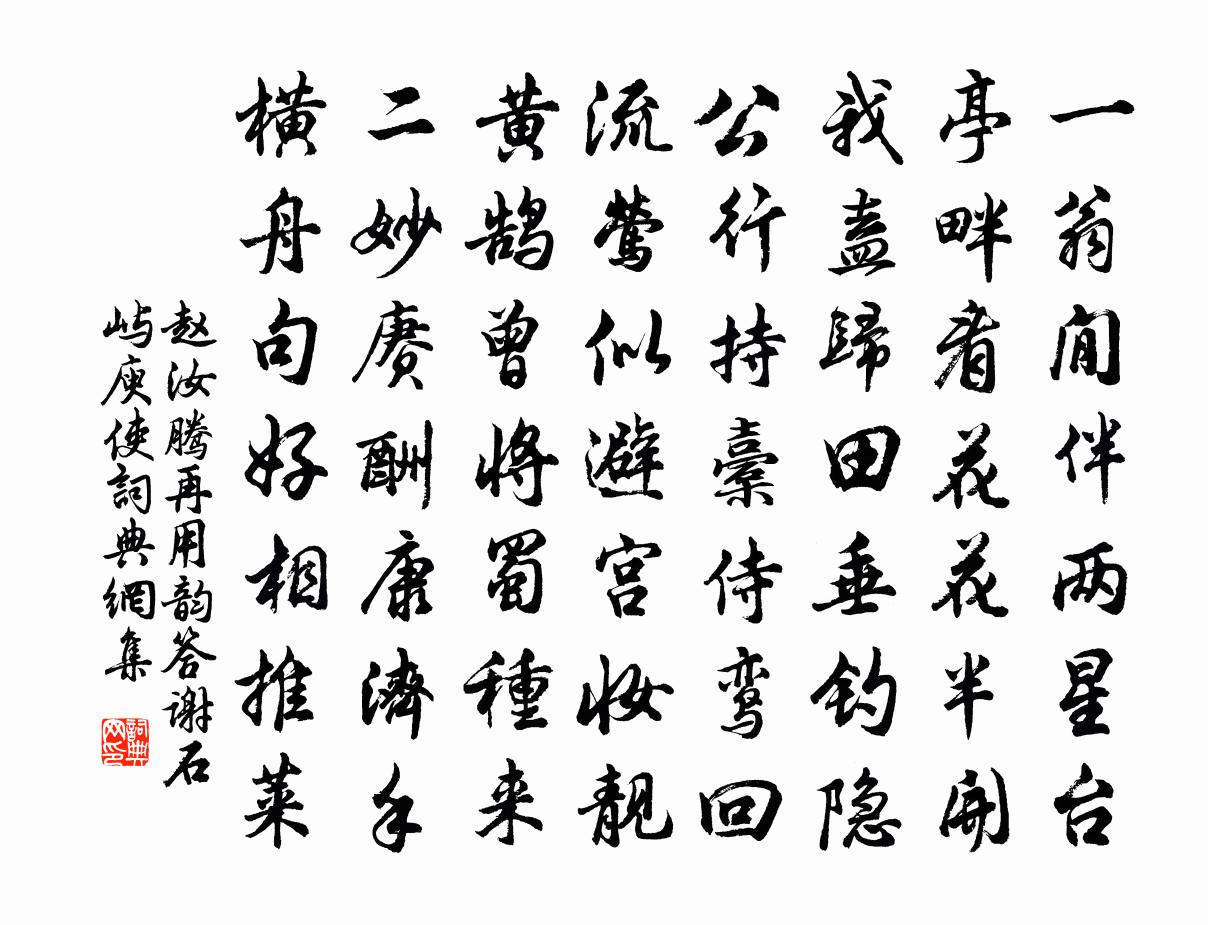 一翁间伴两星台
亭畔看花花半開
我盍歸田垂钓隐
公行持橐侍鸾回
流莺似避宫妆靓
黄鹄曾将蜀種来
二妙赓酬康濟手
横舟句好相推莱
赵汝腾再用韵答谢石
屿庾使詞典網集
詞典
网印